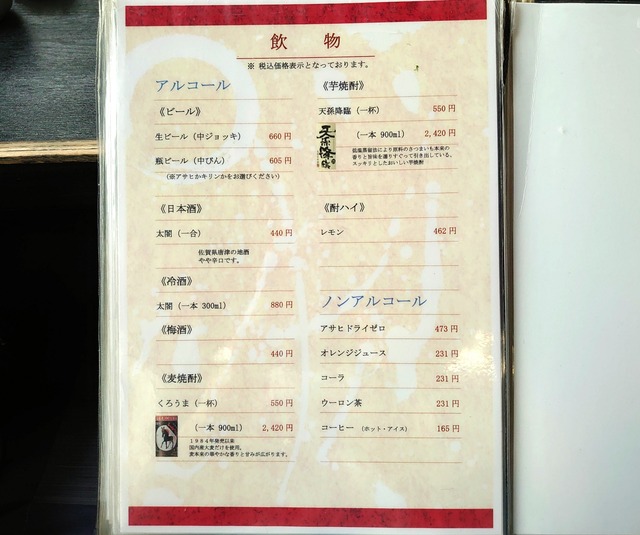 飲 物
※ 税込価格表示となっております。
アルコール
《ビール》
生ビール（中ジョッキ） 660 円
瓶ビール（中びん） 605 円
（※アサヒかキリンかをお選びください）
《日本酒》
太閤（一合） 440 円
佐賀県唐津の地酒
やや辛口です。
《冷酒》
太閤（一本 300ml） 880 円
《梅酒》
440 円
《麦焼酎》
くろうま（一杯） 550 円
（一本 900ml） 2,420 円
１９８４年発売以来
国内産大麦だけを使用。
麦本来の華やかな香りと甘みが広がります。
《芋焼酎》
天孫降臨（一杯） 550 円
天孫降臨
（一本 900ml） 2,420 円
低温蒸留法により原料のさつまいも本来の
香りと旨味を選りすぐって引き出している。
スッキリとしたおいしい芋焼酎
《酎ハイ》
レモン 462 円
ノンアルコール
アサヒドライゼロ 473 円
オレンジジュース 231 円
コーラ 231 円
ウーロン茶 231 円
コーヒー （ホット・アイス） 165 円